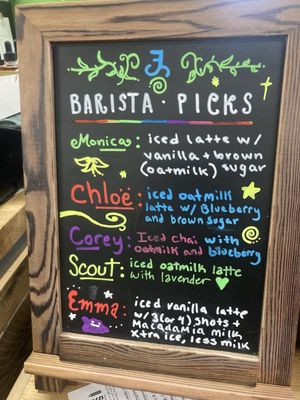 BARISTA · PICKS
Monica: iced latte w/
vanilla + brown
(oatmilk) sugar
Chloe: iced oatmilk
latte w/ Blueberry
and brown sugar
Corey: Iced chai with
oatmilk and blueberry
Scout: iced oatmilk latte
with lavender
Emma: iced vanilla latte
w/ 3(or 4) shots +
Macadamia milk
xtra ice, less milk